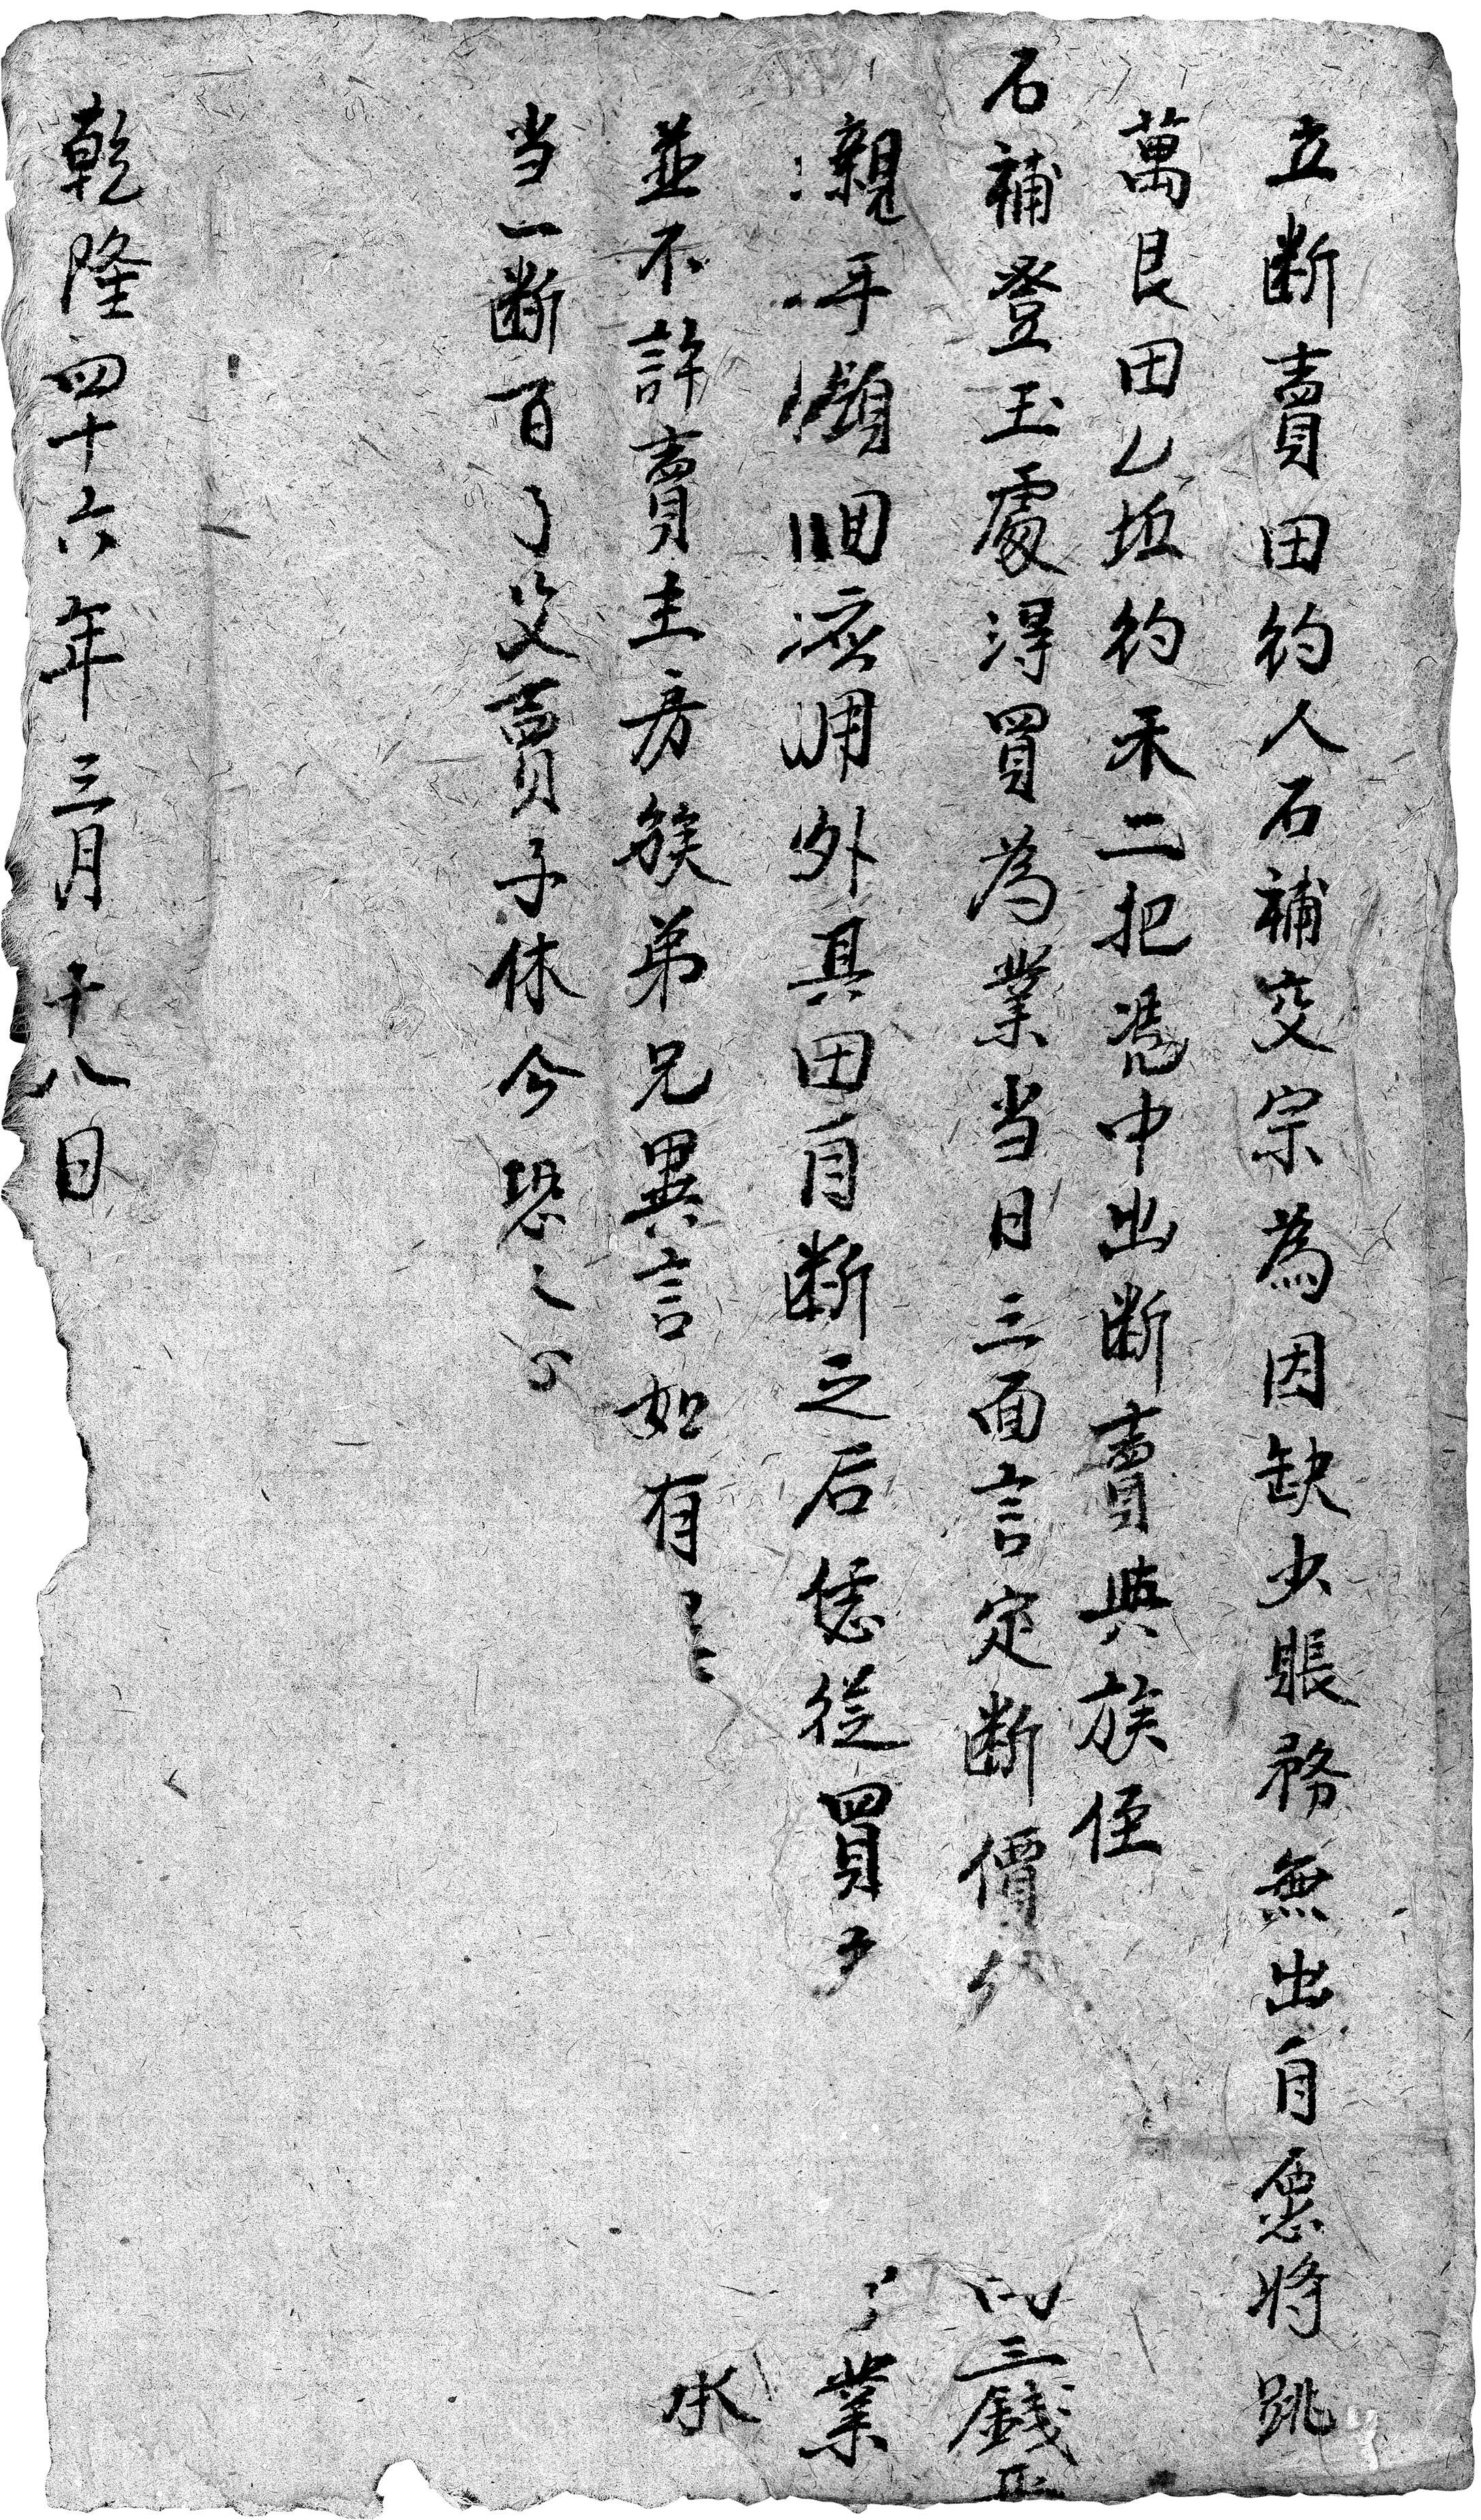 立断賣田約人石補交宗為因缺少賬務無出自愿將跳
萬艮田乙坵約禾二把憑中出断賣與族侄
石補登玉處得買為業当日三面言定断價 三錢正
親手領回應用外其田自断之后恁從買 業
並不許賣主房族弟兄異言如有 承
当一断百了父賣子休今恐
乾隆四十六年三月十八日